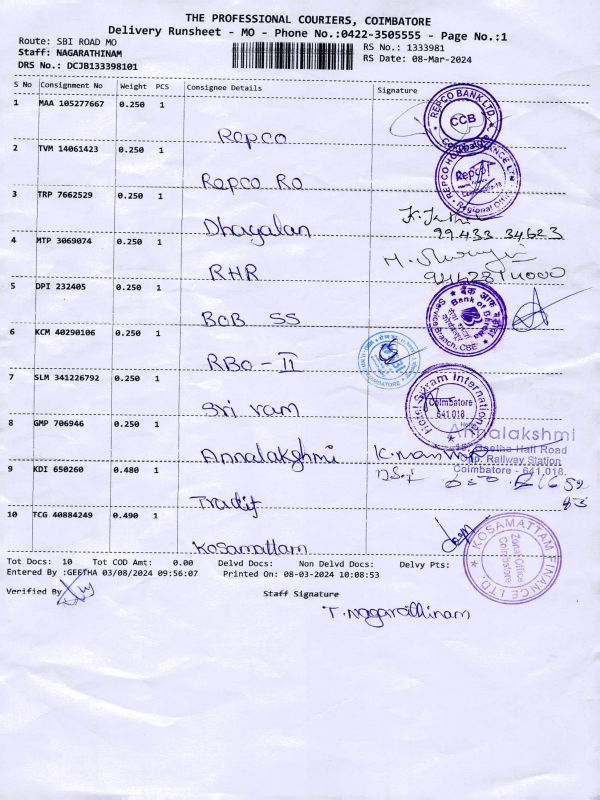 THE PROFESSIONAL COURIERS, COIMBATORE
Delivery Runsheet - MO - Phone No.:0422-3505555 - Page No.:1
Route: SBI ROAD MO
RS No.: 1333981
Staff: NAGARATHINAM
RS Date: 08-Mar-2024
DRS No.: DCJB133398101
S No Consignment No Weight PCS Consignee Details Signature
1 MAA 105277667 0.250 1
REPCO BANK LTD.
CCB
Coimbatore
Repco
2 TVM 14061423 0.250 1
Repco
Regional Office
Repco Ro
3 TRP 7662529 0.250 1
Dhayalan
99433 34623
4 MTP 3069074 0.250 1
RHR
5 DPI 232405 0.250 1
बैंक ऑफ
Bank of
Service Branch, CBE
BOB SS
6 KCM 40290106 0.250 1
RBO - II
COIMBATORE
7 SLM 341226792 0.250 1
Hotel Sriram International
Coimbatore
641 018.
Sri ram
8 GMP 706946 0.250 1
Annalakshmi
Geetha Hall Road
Opp. Railway Station
Coimbatore - 641 018.
Annalakshmi
9 KDI 650260 0.480 1
10 TCG 40884249 0.490 1
KOSAMATTAM FINANCE LTD.
Zonal Office
Coimbatore
Kosamattam
Tot Docs: 10 Tot COD Amt: 0.00 Delvd Docs: Non Delvd Docs: Delvy Pts:
Entered By :GEETHA 03/08/2024 09:56:07 Printed On: 08-03-2024 10:08:53
Verified By
Staff Signature
T. Nagarathinam